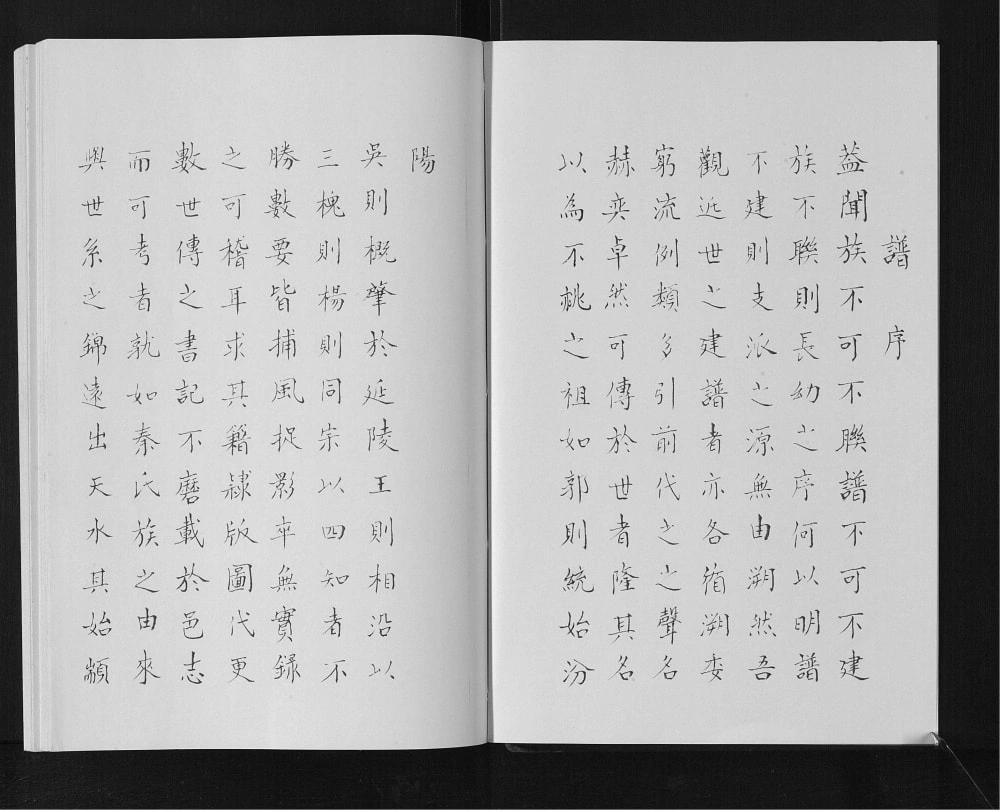 譜序
蓋聞族不可不聯譜不可不建
族不聯則長幼之序何以明譜
不建則支派之源無由溯然吾
觀近世之建譜者亦各循溯委
窮流例類多引前代之聲名
赫奕卓然可傳於世者隆其名
以為不祧之祖如郭則統始汾
陽
吳則概肇於延陵王則相沿以
三槐則楊則同宗以四知者不
勝數要皆捕風捉影卒無實録
之可稽耳求其籍隸版圖代更
數世傳之書記不磨載於邑志
而可考者孰如秦氏族之由來
與世系之錦遠出天水其始顓